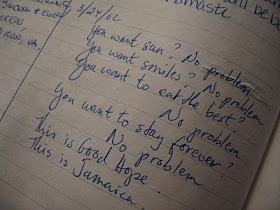 Namaste
3/24/02
You want sun? No problem
You want smiles? No problem
You want to eat the best?
No problem
You want to stay forever?
No problem
This is Good Hope.
This is Jamaica.